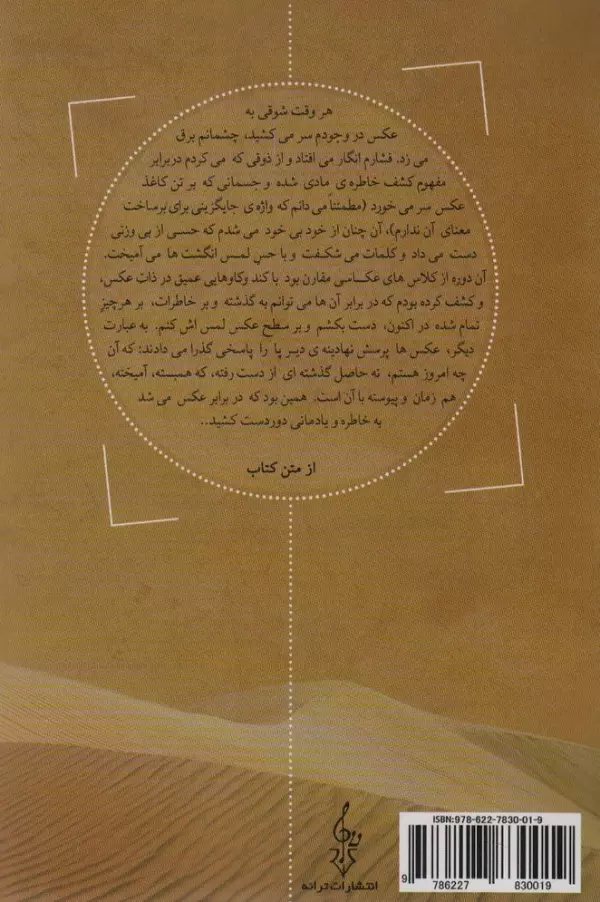 هر وقت شوقی به
عکس در وجودم سر می کشید، چشمانم برق
می زد. فشارم انگار می افتاد و از ذوقی که می کردم دربرابر
مفهوم کشف خاطره ی مادی شده و جسمانی که بر تن کاغذ
عکس سر می خورد (مطمئناً می دانم که واژه ی جایگزینی برای برساخت
معنای آن ندارم)، آن چنان از خود بی خود می شدم که حسی از بی وزنی
دست می داد و کلمات می شکفت و با حسِ لمس انگشت ها می آمیخت.
آن دوره از کلاس های عکاسی مقارن بود با کند وکاوهایی عمیق در ذاتِ عکس،
و کشف کرده بودم که در برابر آن ها می توانم به گذشته و بر خاطرات، بر هرچیزِ
تمام شده در اکنون، دست بکشم و بر سطح عکس لمس اش کنم. به عبارت
دیگر، عکس ها پرسش نهادینه ی دیر پا را پاسخی گذرا می دادند: که آن
چه امروز هستم، نه حاصل گذشته ای از دست رفته، که همبسته، آمیخته،
هم زمان و پیوسته با آن است. همین بود که در برابر عکس می شد
به خاطره و یادمانی دوردست کشید..
از متن کتاب
انتشارات ترانه
ISBN:978-622-7830-01-9
9 786227 830019